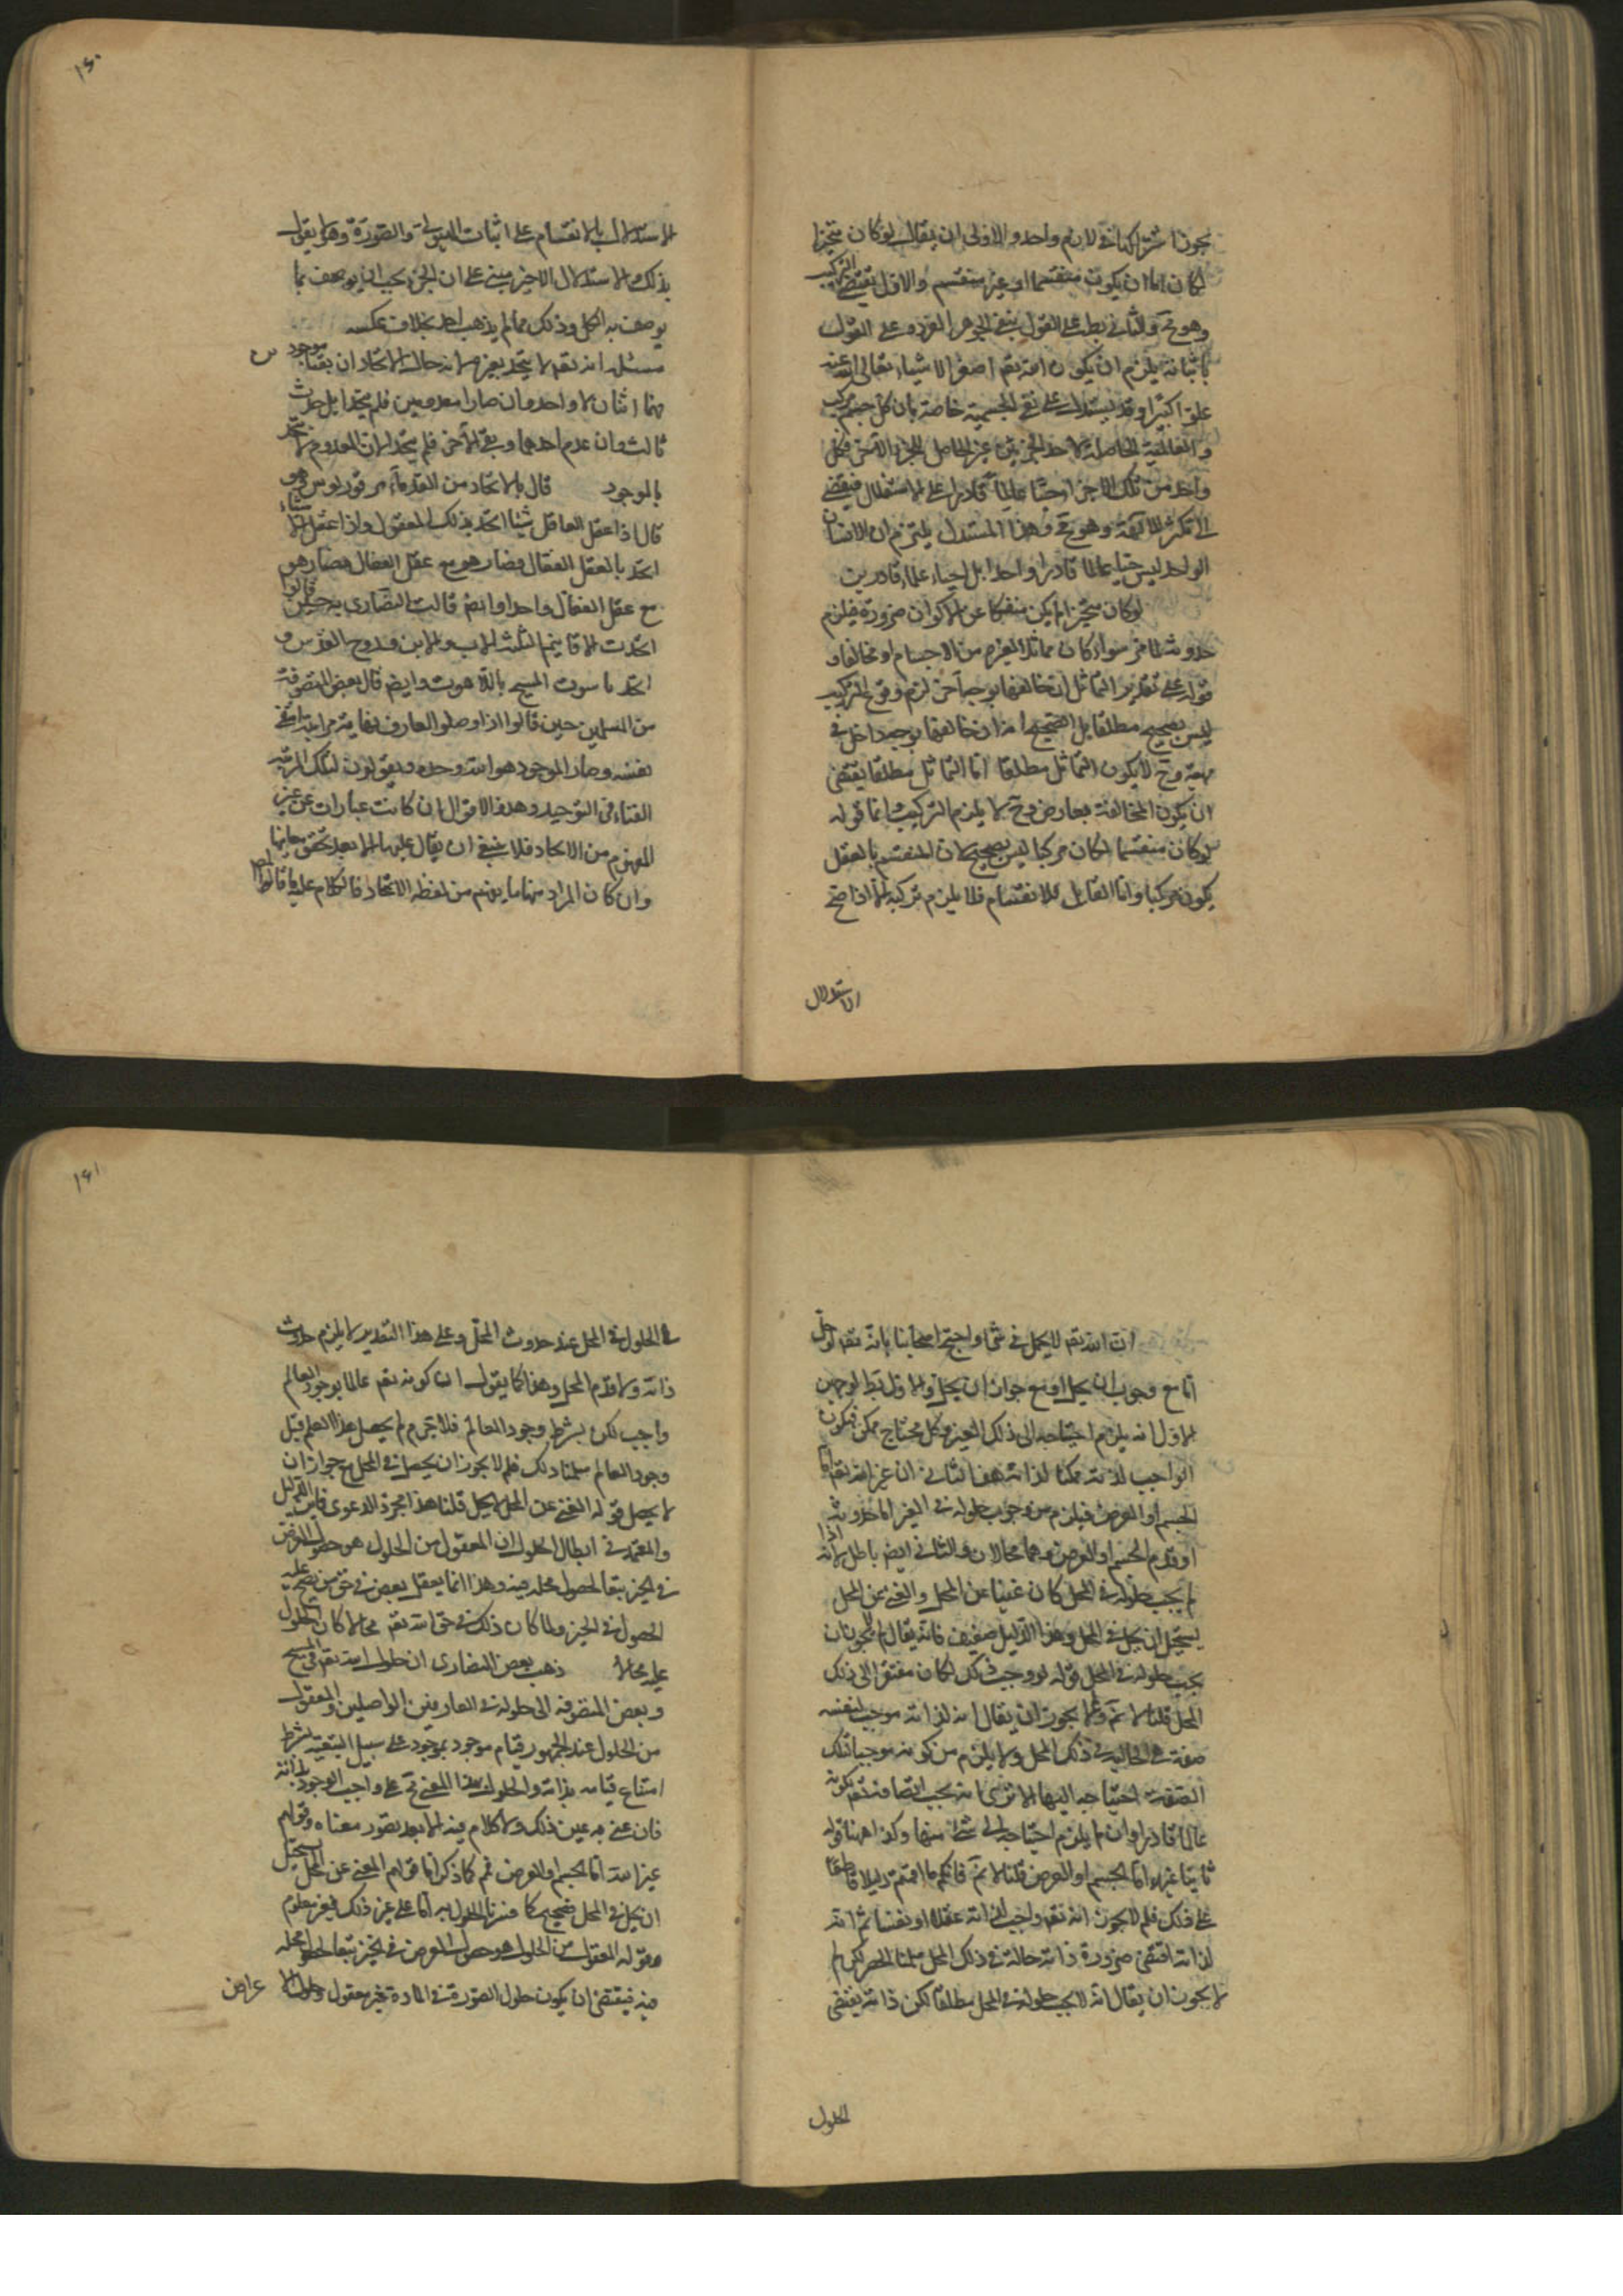 يجوز اشتراكها في لازم واحد والاولى ان يقال لو كان متحيزا
لكان اما ان يكون منقسما او غير منقسم والاول يقتضي التركيب
وهو مح والثاني بط على القول بنفي الجوهر الفرد وعلى القول
باثباته يلزم ان يكون الله تع اصغر الاشياء تعالى الله عنه
علوا كبيرا وقد يستدل على نفي الجسمية خاصة بان كل جسم مركب
والعالمية الحاصلة لاحد الجزئين غير الحاصل للجزء الآخر فكل
واحد من تلك الاجزاء حيا عالما قادرا على الاستقلال فيفضي
الى تكثر الآلهة وهو مح وهذا المستدل يلتزم ان الانسان
الواحد ليس حيا عالما قادرا واحدا بل احياء علماء قادرين
لو كان متحيزا لم يكن منفكا عن الاكوان ضرورة فيلزم
حدوثه سواء كان مماثلا لغيره من الاجسام او مخالفا و
قوله على تقدير التماثل ان خالفها بوجه آخر لزم وقوع التركيب
ليس بصحيح مطلقا بل الصحيح انه ان خالفها بوجه داخل في
مهيته وح لا يكون التماثل مطلقا اما التماثل مطلقا يقتضي
ان يكون المخالفة بعارض وح لا يلزم التركيب واما قوله
لو كان منقسما لكان مركبا ليس بصحيح لان المنقسم بالعقل
يكون مركبا واما القابل للانقسام فلا يلزم تركبه الا اذا صح
الاستدلال
١٦٠
الاستدلال بالانقسام على اثبات الهيولى والصورة وهو لا يقول
بذلك والاستدلال الاخير مبني على ان الجزء يجب ان يوصف بما
يوصف به الكل وذلك مما لم يذهب احد بخلاف عكسه
مسئلة انه تع لا يتحد بغيره لانه حال الاتحاد ان بقيا موجودين
فهما اثنان لا واحد وان صارا معدومين فلم يتحدا بل حدث
ثالث وان عدم احدهما وبقي الآخر فلم يتحد لان المعدوم لا يتحد
بالموجود قال بالاتحاد من القدماء فرفوريوس فهو
قال اذا عقل العاقل شيئا اتحد بذلك المعقول واذا عقل اشياء
اتحد بالعقل الفعال فصار هو مع عقل الفعال فصار هو
مع عقل الفعال واحدا وايضا قالت النصارى به حين قالوا
اتحدت الاقانيم الثلثة الاب والابن وروح القدس و
اتحد ناسوت المسيح باللاهوت وايضا قال بعض المتصوفة
من المسلمين حين قالوا اذا وصل العارف نهاية مراتبه انتفى
نفسه وصار الموجود هو الله وحده ويقولون لتلك المرتبة
الفناء في التوحيد وهذه الاقوال ان كانت عبارات عن غير
المفهوم من الاتحاد فلا ينبغي ان يقال عليها الا بعد تحقق معانيها
وان كان المراد منها ما يفهم من لفظه الاتحاد فالكلام عليه ما قاله
ان الله تع لا يحل في شئ واحتج اصحابنا بانه تع لو حل
اما مع وجوب ان يحل او مع جواز ان يحل والاول بط لوجهين
الاول انه يلزم احتياجه الى ذلك الغير وكل محتاج ممكن فيكون
الواجب لذاته ممكنا لذاته هف الثاني ان غير الله تع اما
الجسم او العرض فيلزم من وجوب حلوله في الغير اما حدوثه
او قدم الجسم او العرض وهما محالان والثاني ايض باطل لانه اذا
لم يجب حلوله في المحل كان غنيا عن المحل والغني عن المحل
يستحيل ان يحل في المحل وهذا الدليل ضعيف فانه يقال لم لا يجوز ان
يجب حلوله في المحل قوله لو وجب ذلك لكان مفتقرا الى ذلك
المحل قلنا لا نم ولم لا يجوز ان يقال انه لذاته موجب لنفسه
صفة هي الحالية في ذلك المحل ولا يلزم من كونه موجبا تلك
الصفة احتياجه اليها الا ترى انه يجب اتصافه تع بكونه
عالما قادرا وان لم يلزم احتياجه الى شئ منها وكذا ههنا قوله
ثانيا غير الله اما الجسم او العرض قلنا لا نم فانكم ما اقمتم دليلا قاطعا
على ذلك فلم لا يجوز انه تع واجب لذاته عقلا او نفسا ثم انه
لذاته اقتضى ضرورة ذاته حالة في ذلك المحل سلمنا الحصر لكن لم
لا يجوز ان يقال انه لا يجب حلوله في المحل مطلقا لكن ذاته يقتضي
الحلول
١٦١
في الحلول في المحل عند حدوث المحل وعلى هذا التقدير لا يلزم حدوث
ذاته ولا قدم المحل وهذا كما يقول ان كونه تع عالما بوجود العالم
واجب لكن بشرط وجود العالم فلا جرم لم يحصل هذا العلم قبل
وجود العالم سلمنا ذلك فلم لا يجوز ان يحصل في المحل مع جواز ان
لا يحصل قوله الغني عن المحل لا يحل قلنا هذا مجرد الدعوى فاين الدليل
والمعتمد في ابطال الحلول ان المعقول من الحلول هو حصول العرض
في الحيز تبعا لحصول محله فيه وهذا انما يعقل بعض في حق من يصح عليه
الحصول في الحيز ولما كان ذلك في حق الله تع محالا كان الحلول
عليه محالا ذهب بعض النصارى ان حلول الله تع في المسيح
وبعض المتصوفة الى حلوله في العارفين الواصلين والمعقول
من الحلول عند الجمهور قيام موجود بموجود على سبيل التبعية بشرط
امتناع قيامه بذاته والحلول بهذا المعنى مح على واجب الوجود لذاته
فان عنى به غير ذلك فلا كلام فيه الا بعد تصور معناه وقوله
غير الله اما الجسم او العرض نعم كما ذكر اما قوله الغني عن المحل يستحيل
ان يحل في المحل صحيح كما فسرنا الحلول به اما على غير ذلك فغير معلوم
وقوله المعقول من الحلول هو حصول العرض في الحيز تبعا لحصول محله
فيه فيقتضي ان يكون حلول الصورة في المادة غير معقول وحلول اعراض